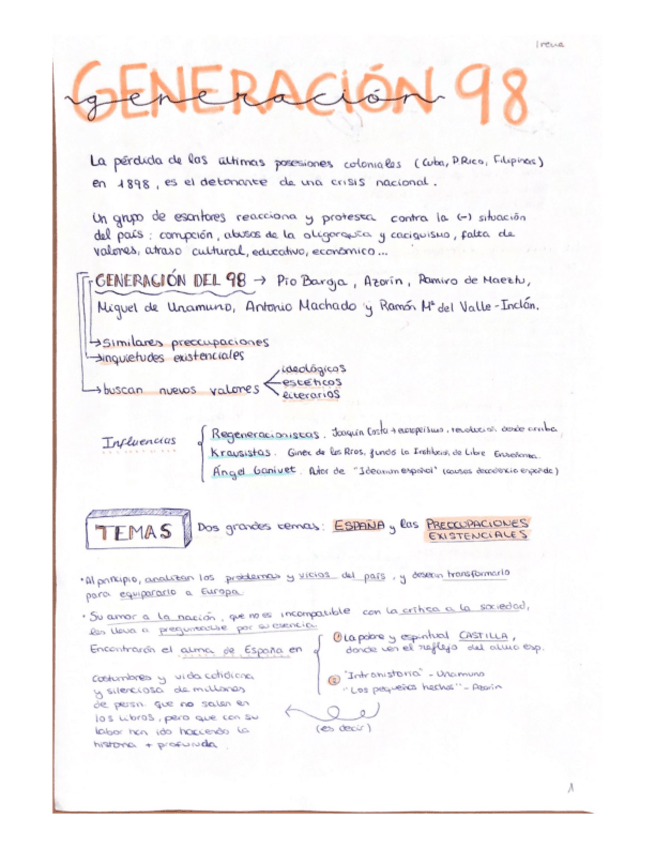 Irene
GENERACIÓN 98
generación
La pérdida de las últimas posesiones coloniales (Cuba, P.Rico, Filipinas)
en 1898, es el detonante de una crisis nacional.
Un grupo de escritores reacciona y protesta contra la (-) situación
del país: corrupción, abusos de la oligarquía y caciquismo, falta de
valores, atraso cultural, educativo, económico...
GENERACIÓN DEL 98 → Pío Baroja, Azorín, Ramiro de Maeztu,
Miguel de Unamuno, Antonio Machado y Ramón Mª del Valle-Inclán.
→ Similares preocupaciones
→ inquietudes existenciales
→ buscan nuevos valores
ideológicos
estéticos
literarios
Influencias
Regeneracionistas. Joaquín Costa + europeísmo, revolución desde arriba
Krausistas. Giner de los Ríos, fundó la Institución de Libre Enseñanza.
Ángel Ganivet. Autor de "Idearium español" (causas decadencia española)
TEMAS
Dos grandes temas: ESPAÑA y las PREOCUPACIONES
EXISTENCIALES
· Al principio, analizan los problemas y vicios del país, y desean transformarlo
para equipararlo a Europa
· Su amor a la nación, que no es incompatible con la crítica a la sociedad,
les lleva a preguntarse por su esencia
Encontrarán el alma de España en
① La pobre y espiritual CASTILLA,
donde ven el reflejo del alma esp.
② "Intrahistoria" - Unamuno
"Los pequeños hechos" - Azorín
(es decir)
costumbres y vida cotidiana
y silenciosa de millones
de person. que no salen en
los libros, pero que con su
labor han ido haciendo la
historia + profunda.
1